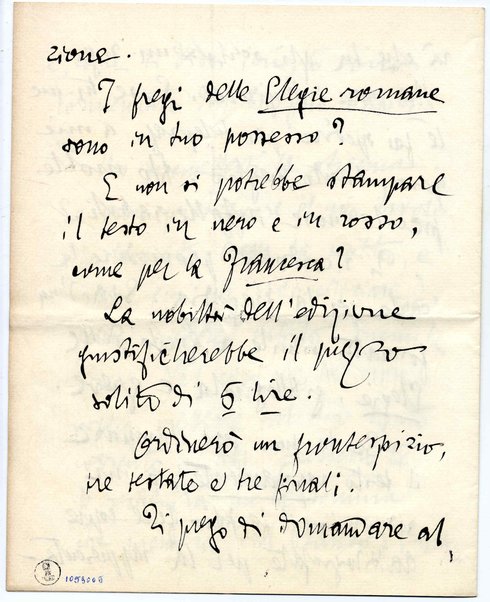 zione.
I fregi delle Elegie romane
sono in tuo possesso?
E non si potrebbe stampare
il testo in nero e in rosso,
come per la Francesca?
La nobiltà dell'edizione
giustificherebbe il prezzo
solito di 5 lire.
Ordinerò un frontespizio,
tre testate e tre finali.
Ti prego di domandare al,
1059008